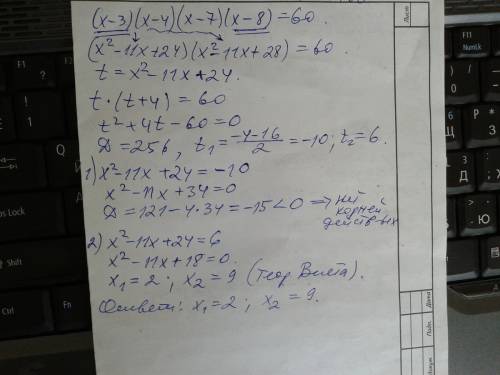 (x-3)(x-4)(x-7)(x-8)=60.
(x²-11x+24)(x²-11x+28)=60.
t=x²-11x+24.
t·(t+4)=60
t²+4t-60=0
D=256, t₁=(-4-16)/2=-10; t₂=6.
1) x²-11x+24=-10
x²-11x+34=0
D=121-4·34=-15<0 ⇒ нет корней действ-ых
2) x²-11x+24=6
x²-11x+18=0.
x₁=2; x₂=9 (теор Виета).
Ответ: x₁=2; x₂=9.
Лист
Дата
Подп.